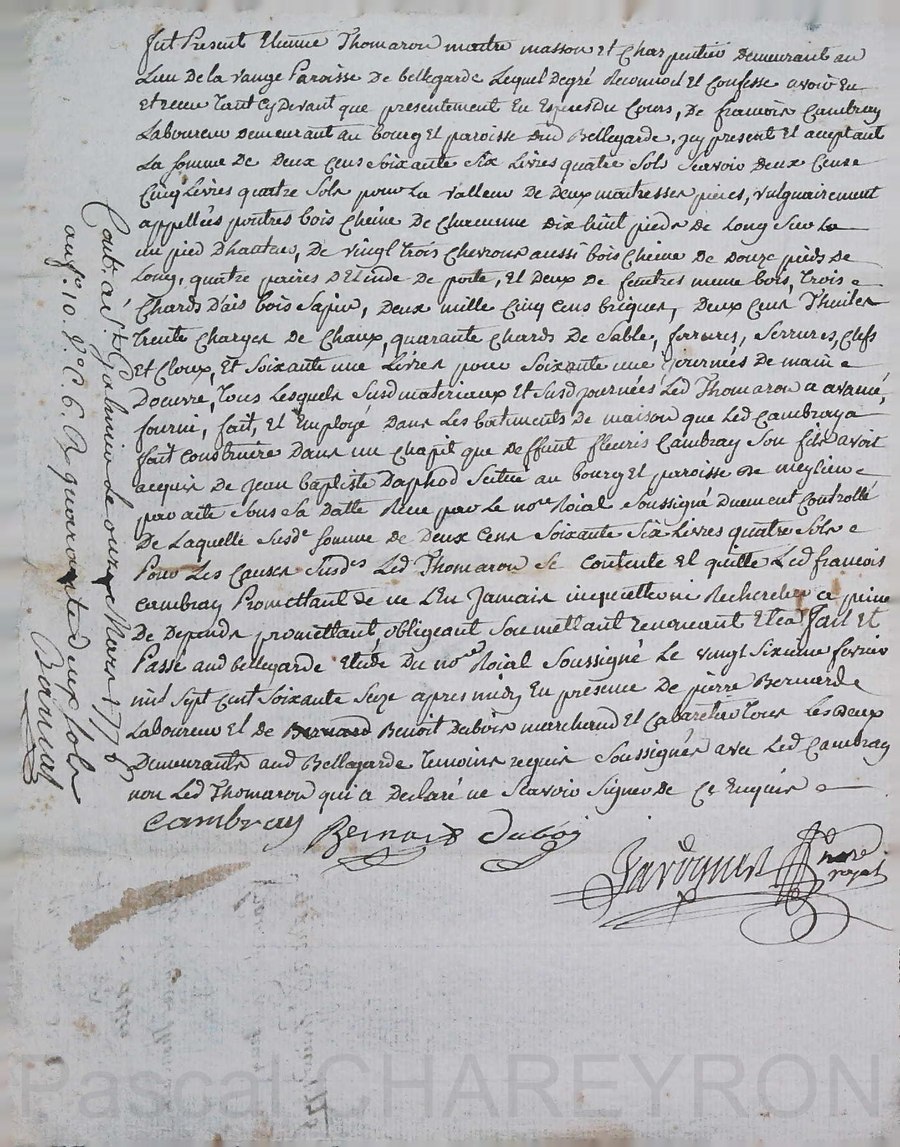 fut Present Etienne Thomaron maitre masson et Charpentier Demeurant au
Lieu De la range Paroisse De bellegarde Lequel Degré Reconnoit et Confesse avoir Eu
et receu tant Cy Devant que presentement En Espesses Du Cours, De francois Cambray
Laboureur Demeurant au bourg et paroisse Dud Bellegarde, jcy present et aceptant
La somme De Deux Cens Soixante Six Livres quatre Sols Scavoir Deux Cens
Cinq Livres quatre Sols pour La Valleur De Deux maitresses pieces, vulguairement
appellées poutres bois Cheine De Chacunne Dix huit pieds De Long Sur
un pied D'hauteur, De vingt trois Chevrons aussi bois Cheine De Douze pieds De
Long, quatre paires De porte, et Deux De fenetres meme bois, trois
Chards D'ais bois Sapin, Deux mille Cinq Cens briques, Deux Cens Thuiles
trente Charges De Chaux, quarante Chards De Sable, ferrures, Serrures, Clefs
et Cloux, et Soixante une Livres pour Soixante une journées De main
Doeuvre, tous Lesquels Susd materiaux et Susd journées Led Thomaron a avancé,
fourni, fait, et Employé Dans Les batiments De maison que Led Cambray a
fait Construire Dans un Chapit que Deffunt fleuris Cambray Son fils avoit
acquis De jean baptiste Daphod Scitué au bourg et paroisse De meylieu
par acte Sous Sa Datte Receu par Le nore Roial Soussigné Duement Controllé
De Laquelle Susde Somme De Deux Cens Soixante Six Livres quatre Sols
Pour Les Causes Susdes Led Thomaron Se Contente et quitte Led francois
Cambray Promettant De ne L'En Jamais inquietter ni Rechercher a peine
De Depends promettant, obligeant Soumettant renonceant Etca fait et
Passé aud bellegarde Etude Du nore Roial Soussigné Le vingt Sixieme fevrier
mil Sept Cent Soixante Seize apres midy En presence De pierre Bernard
Laboureur et De Bernard Benoit Dubois marchand et Cabaretier tous Les deux
Demeurants aud Bellegarde temoins requis Soussignés avec Led Cambray
non Led Thomaron qui a Declaré ne Scavoir Signer De Ce Enquis
Cambray Bernard Duboy
Javognes nore royal
Conté a St Galmier Le onze Mars 1776
quarante deux Sols
Pascal CHAREYRON